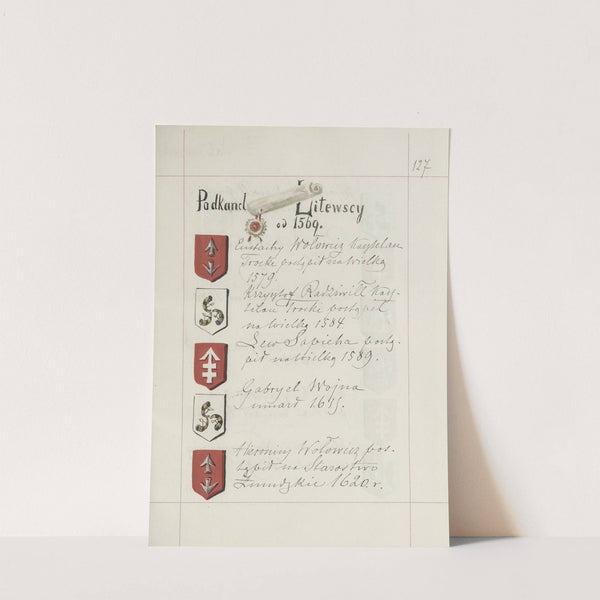 127
Podkancl Litewscy
od 1569.
Eustachy Wołowicz kasztelan
Trocki postąpił na Wielką
1579.
Krzysztof Radziwiłł kasz-
telan Trocki postąpił
na Wielką 1584.
Lew Sapieha postą-
pił na Wielką 1589.
Gabryel Wojna
umarł 1615.
Hieronim Wołowicz pos-
tąpił na Starostwo
Żmudzkie 1620. r.